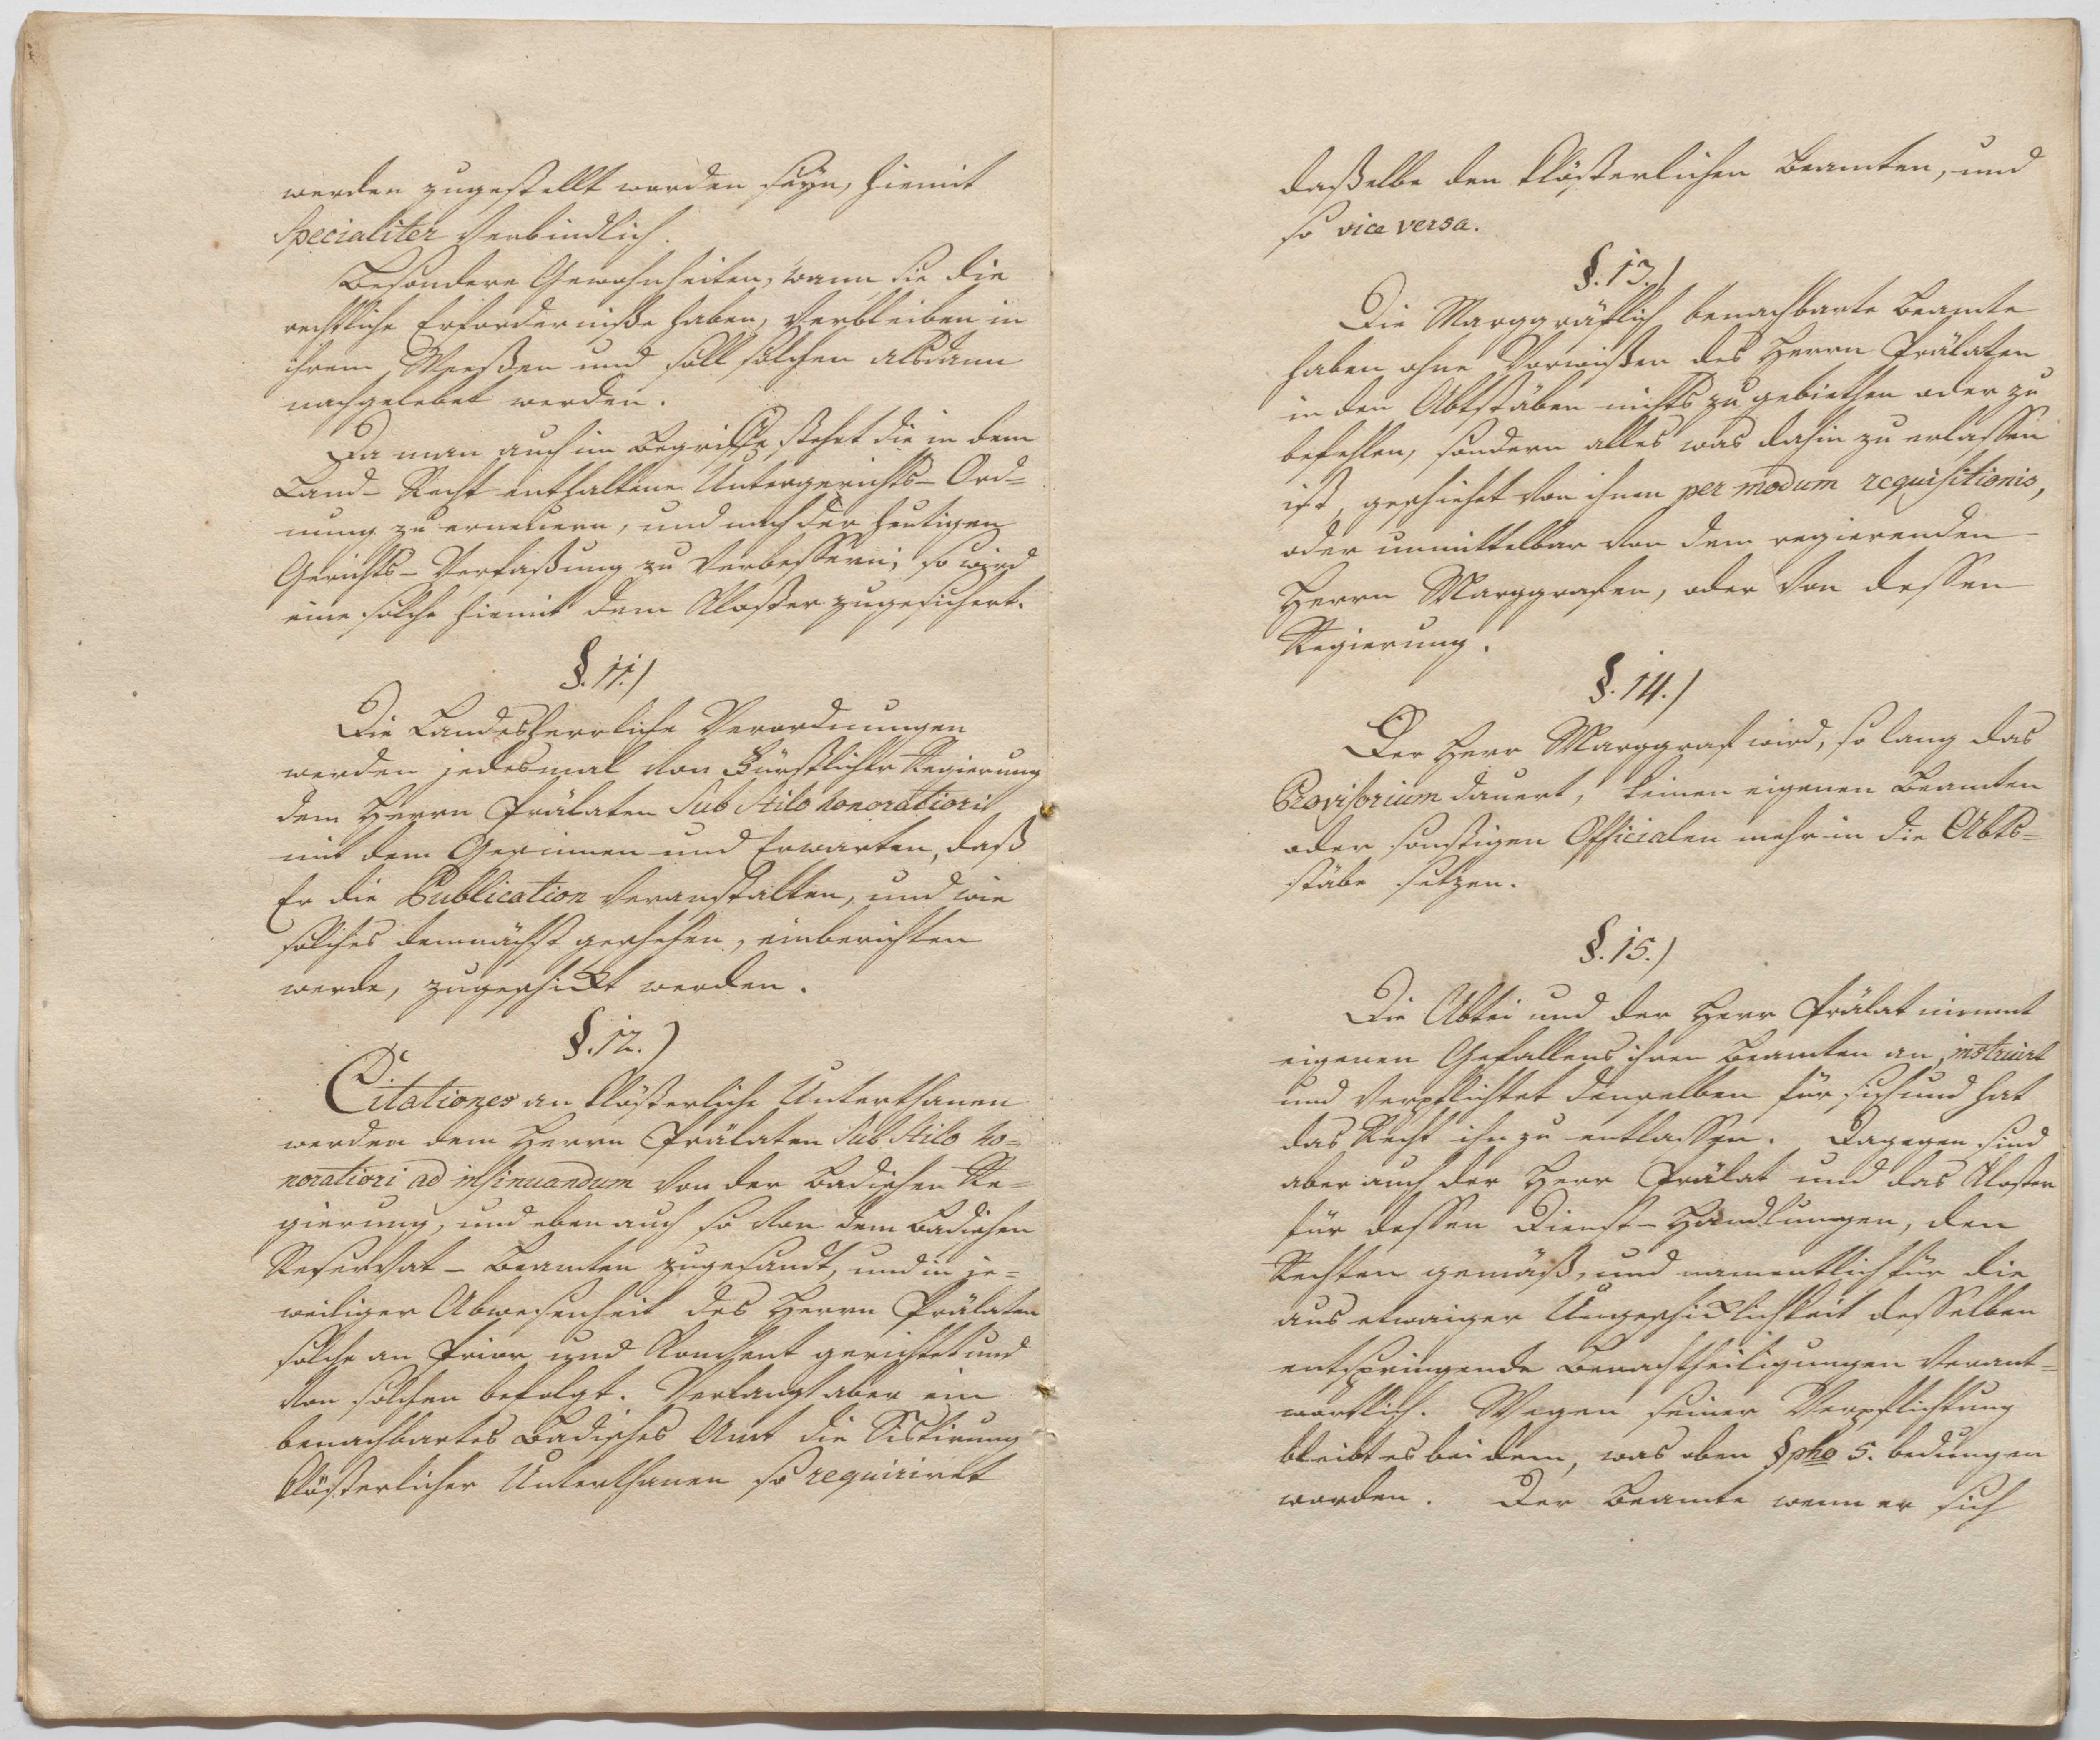 werden zugestellt worden seyn, hiemit
Specialiter verbindlich.
Besondere Gewohnheiten, wann sie die
rechtliche Erforderniße haben, verbleiben in
ihrem Weeßen und soll solchen alsdann
nachgelebet werden.
Da man auch im Begriffe stehet die in dem
Land-Recht enthaltene Untergerichts-Ord-
nung zu erneuern, und nach der heutigen
Gerichts-Verfaßung zu verbessern; so wird
eine solche hiemit dem Kloster zugesichert.
§. 11.)
Die Landesherrliche Verordnungen
werden jedesmal von Fürstlicher Regierung
dem Herrn Prälaten Sub Stilo honoratiori
mit dem Gesinnen und Erwarten, daß
Er die Publication veranstalten, und wie
solches demnächst geschehen, einberichten
werde, zugeschickt werden.
§. 12.)
Citationes an klösterliche Unterthanen
werden dem Herrn Prälaten Sub Stilo ho-
noratiori ad insinuandum von der Badischen Re-
gierung, und eben auch so von dem Badischen
Reservat-Beamten zugesandt, und in je-
weiliger Abwesenheit des Herrn Prälaten
solche an Prior und Konvent gerichtet und
von solchen befolgt. Verlangt aber ein
benachbartes Badisches Amt die Sistirung
klösterlicher Unterthanen so requiriret
daßelbe den klösterlichen Beamten, und
so vice versa.
§. 13.)
Die Marggräflich benachbarte Beamte
haben ohne Vorwißen des Herrn Prälaten
in den Abtstäben nichts zu gebiethen oder zu
befehlen, sondern alles was dahin zu erlassen
ist, geschiehet von ihnen per modum requisitionis,
oder unmittelbar von dem regierenden
Herrn Marggrafen, oder von dessen
Regierung.
§. 14.)
Der Herr Marggraf wird, so lang das
Provisorium dauert, keinen eigenen Beamten
oder sonstigen Officialen mehr in die Abts-
stäbe setzen.
§. 15.)
Die Abtei und der Herr Prälat nimmt
eigenen Gefallens ihren Beamten an, instruirt
und verpflichtet denselben für sich und hat
das Recht ihn zu entlassen. Dagegen sind
aber auch der Herr Prälat und das Kloster
für dessen Dienst-Handlungen, den
Rechten gemäß, und namentlich für die
aus etwaiger Ungeschicklichkeit desselben
entspringende Benachtheiligungen verant-
wortlich. Wegen seiner Verpflichtung
bleibt es bei dem, was oben §pho 5. bedungen
worden. Der Beamte wenn er sich